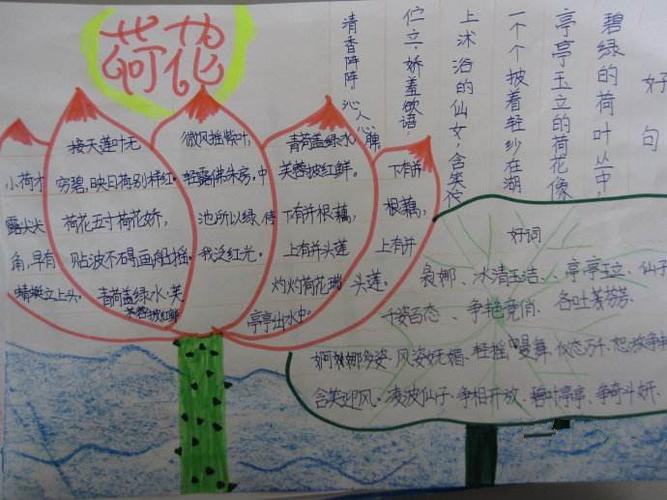 荷花
小荷才
露尖尖
角,早有
蜻蜓立上头。
接天莲叶无
穷碧,映日荷别样红。
荷花五寸荷花娇,
贴波不碍画船摇。
青荷盖绿水,芙
蓉披红鲜
微风摇紫叶,
轻露拂朱房。中
池所以绿,待
我泛红光。
青荷盖绿水
芙蓉披红鲜。
下有并根藕,
上有并头莲
灼灼荷花瑞
亭亭出水中。
下有并
根藕,
上有并
头莲。
好句
碧绿的荷叶丛中,
亭亭玉立的荷花像
一个个披着轻纱在湖
上沐浴的仙女,含笑
伫立,娇羞欲语,
清香阵阵,沁人心脾
好词
袅娜、冰清玉洁、亭亭玉立、仙子
千姿百态、争艳竞俏、各吐芬芳、
婀娜多姿、风姿妩媚、轻摇曼舞、仪态万千、怒放争
含笑迎风、凌波仙子、争相开放、碧叶亭亭、争奇斗妍、